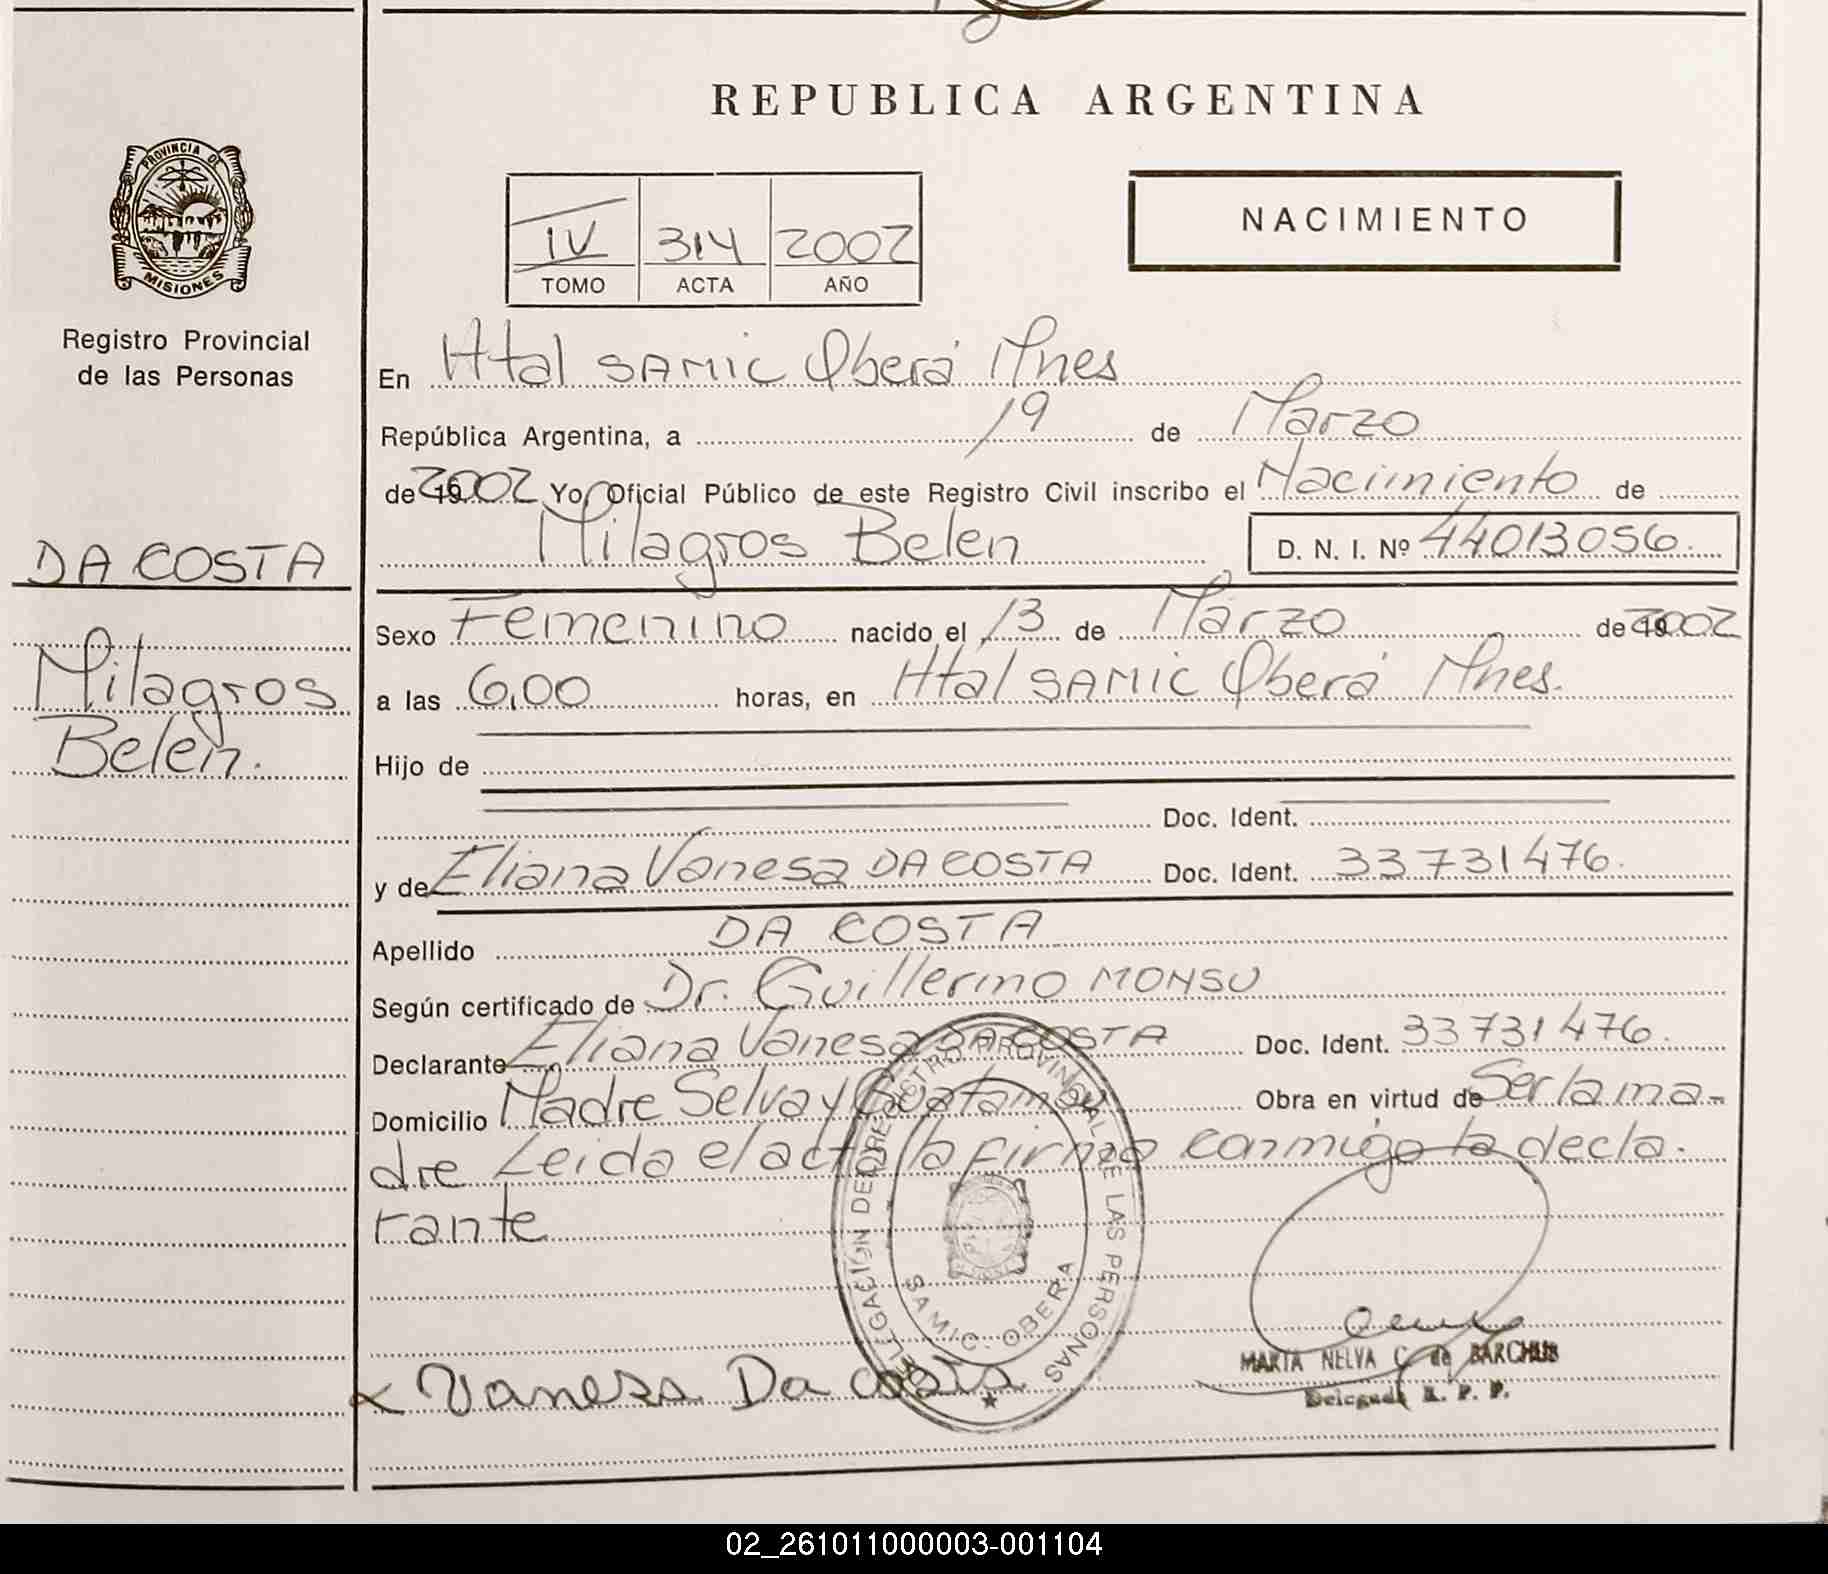 REPUBLICA ARGENTINA
PROVINCIA DE
MISIONES
Registro Provincial
de las Personas
DA COSTA
Milagros
Belen.
IV 314 2002
TOMO ACTA AÑO
NACIMIENTO
En Htal SAMIC Oberá Mnes
República Argentina, a 19 de Marzo
de 2002 Yo, Oficial Público de este Registro Civil inscribo el Nacimiento de
Milagros Belen D. N. I. Nº 44013056.
Sexo Femenino nacido el 13 de Marzo de 2002
a las 6,00 horas, en Htal SAMIC Oberá Mnes.
Hijo de
Doc. Ident.
y de Eliana Vanesa DA COSTA Doc. Ident. 33731476.
Apellido DA COSTA
Según certificado de Dr. Guillermo MONSU
Declarante Eliana Vanesa DA COSTA Doc. Ident. 33731476.
Domicilio Madre Selva y Obra en virtud de Ser la ma-
dre Leida el acta la firma conmigo la decla.
rante
DELEGACIÓN DEL REGISTRO PROVINCIAL DE LAS PERSONAS
SAMIC. OBERA
Vanesa Da Costa
MARTA NELVA C. de BARCHUB
Delegada R. P. P.
02_261011000003-001104